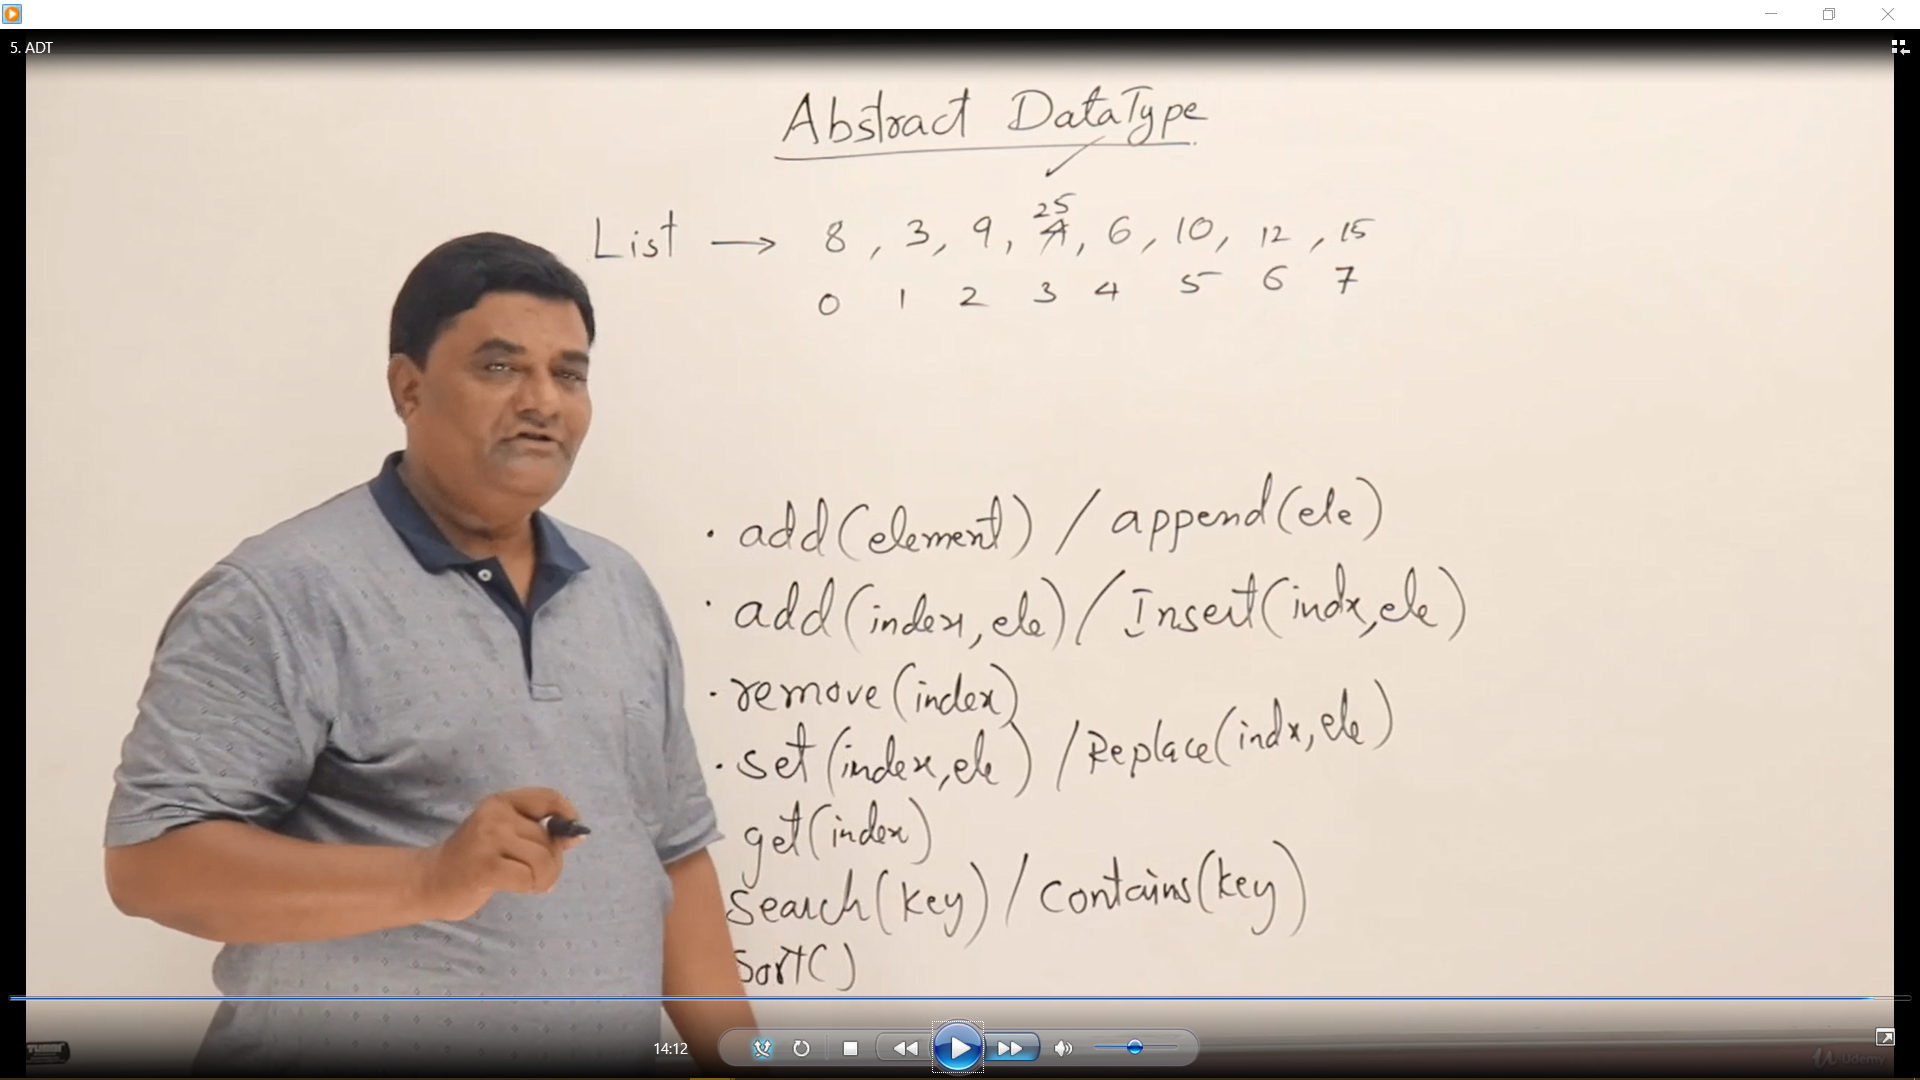 5. ADT
Abstract DataType
List → 8 , 3 , 9 , 4 , 6 , 10 , 12 , 15
25
0 1 2 3 4 5 6 7
· add(element) / append(ele)
· add(index,ele) / Insert(indx,ele)
· remove(index)
· set(index,ele) / Replace(indx,ele)
get(index)
search(key) / contains(key)
sort()
14:12
Udemy